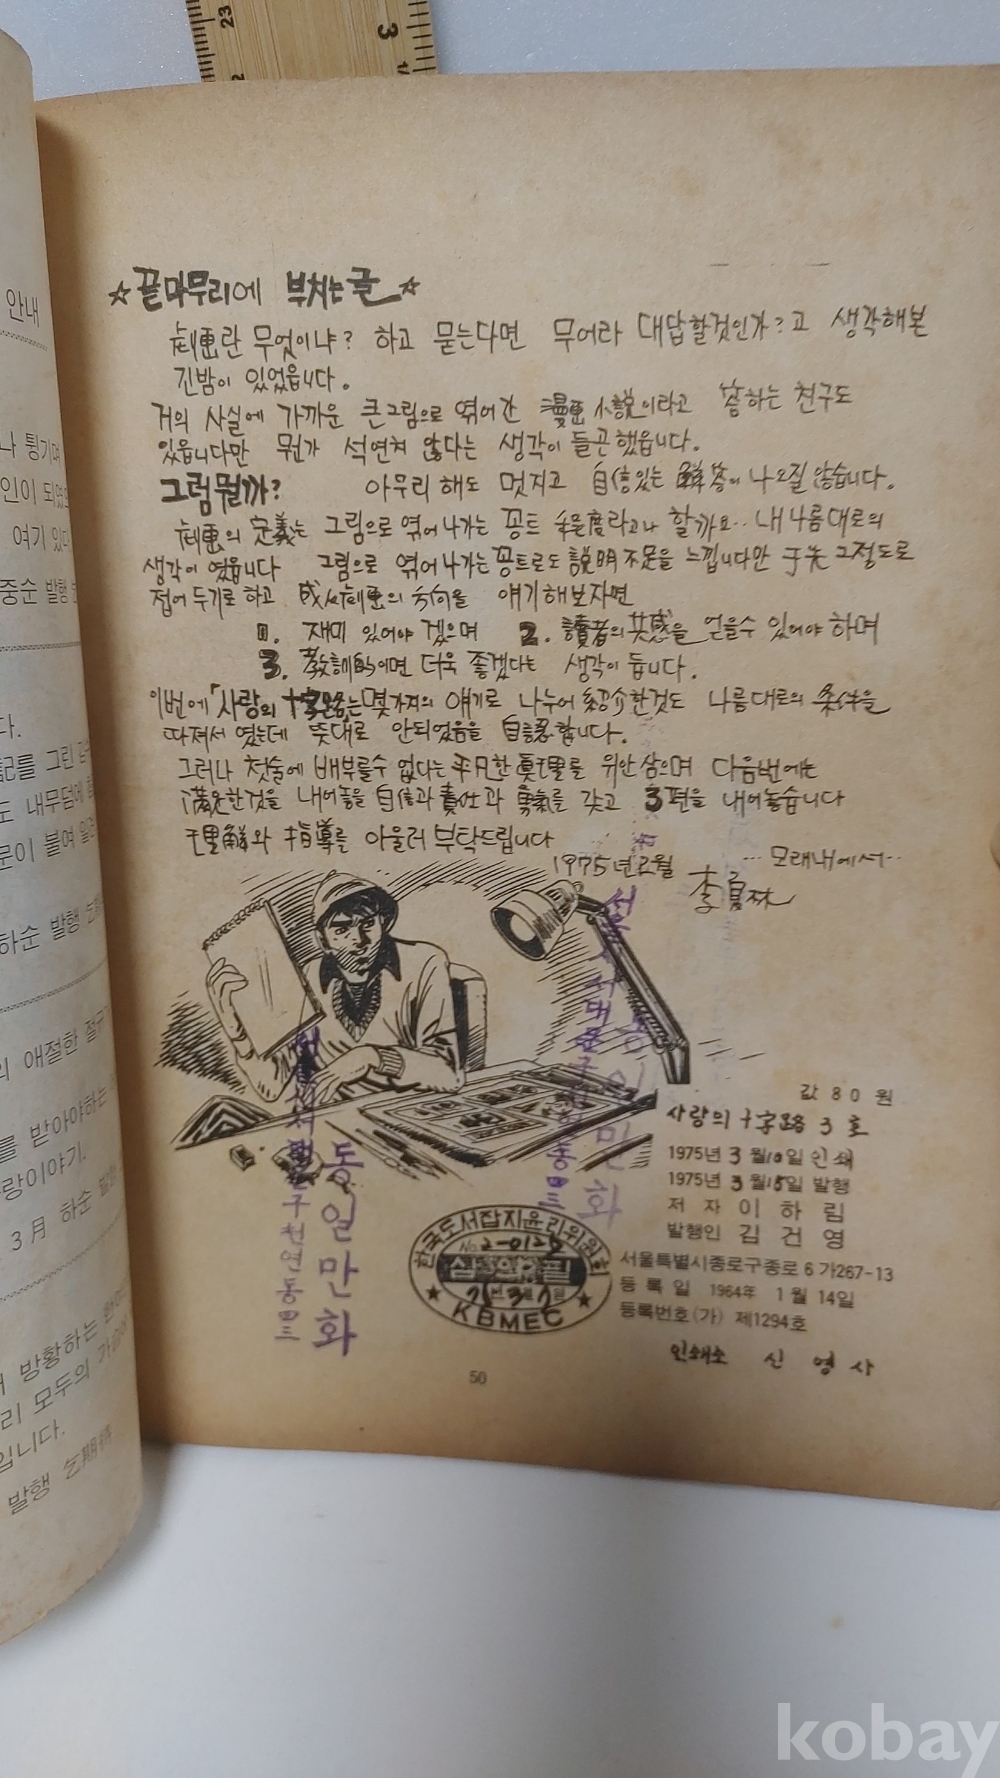 ☆끝마무리에 부치는 글☆
劇画란 무엇이냐? 하고 묻는다면 무어라 대답할것인가?고 생각해본
긴밤이 있었읍니다.
거의 사실에 가까운 큰그림으로 엮어간 漫画小説이라고 答하는 친구도
있읍니다만 뭔가 석연쳐 않다는 생각이 들곤했읍니다.
그럼뭘까? 아무리 해도 멋지고 自信있는 解答이 나오질 않습니다.
劇画의 定義는 그림으로 엮어나가는 꽁트 程度라고나 할까요.. 내나름대로의
생각이 였읍니다 그림으로 엮어나가는 꽁트로도 説明不足을 느낍니다만 于先 그정도로
접어두기로 하고 成人劇画의 方向을 얘기해보자면
1. 재미 있어야 겠으며 2. 讀者의 共感을 얻을수 있어야 하며
3. 教訓的이면 더욱 좋겠다는 생각이 듭니다.
이번에「사랑의 十字路」는 몇가져의 얘기로 나누어 紹介한것도 나름대로의 条件을
따져서 였는데 뜻대로 안되었음을 自認합니다.
그러나 첫술에 배부를수 없다는 平凡한 眞理를 위안삼으며 다음번에는
満足한것을 내어놓을 自信과 責任과 勇氣를 갖고 3편을 내어놓습니다
理解와 指導를 아울러 부탁드립니다
1975년 2월 …모래내에서…
李夏林
값 80원
사랑의 十字路 3호
1975년 3월10일 인쇄
1975년 3월15일 발행
저자 이하림
발행인 김건영
서울특별시종로구종로 6가267-13
등록일 1964年 1월 14일
등록번호(가) 제1294호
인쇄소 신영사
한국도서잡지윤리위원회
심의필
KBMEC
동일만화
서대문구천연동四三
50
안내
나 튕기며
인이 되었
여기 있다
중순 발행
다.
記를 그린
도 내무덤에
문이 붙여
하순 발행
의 애절한 절구
를 받아야하는
랑이야기.
3月 하순
방황하는
리 모두의
입니다.
발행
kobay